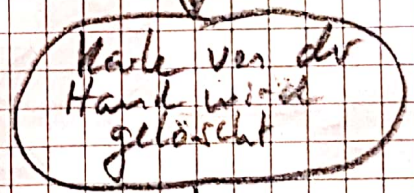 Karte von der
Hand wird
gelöscht